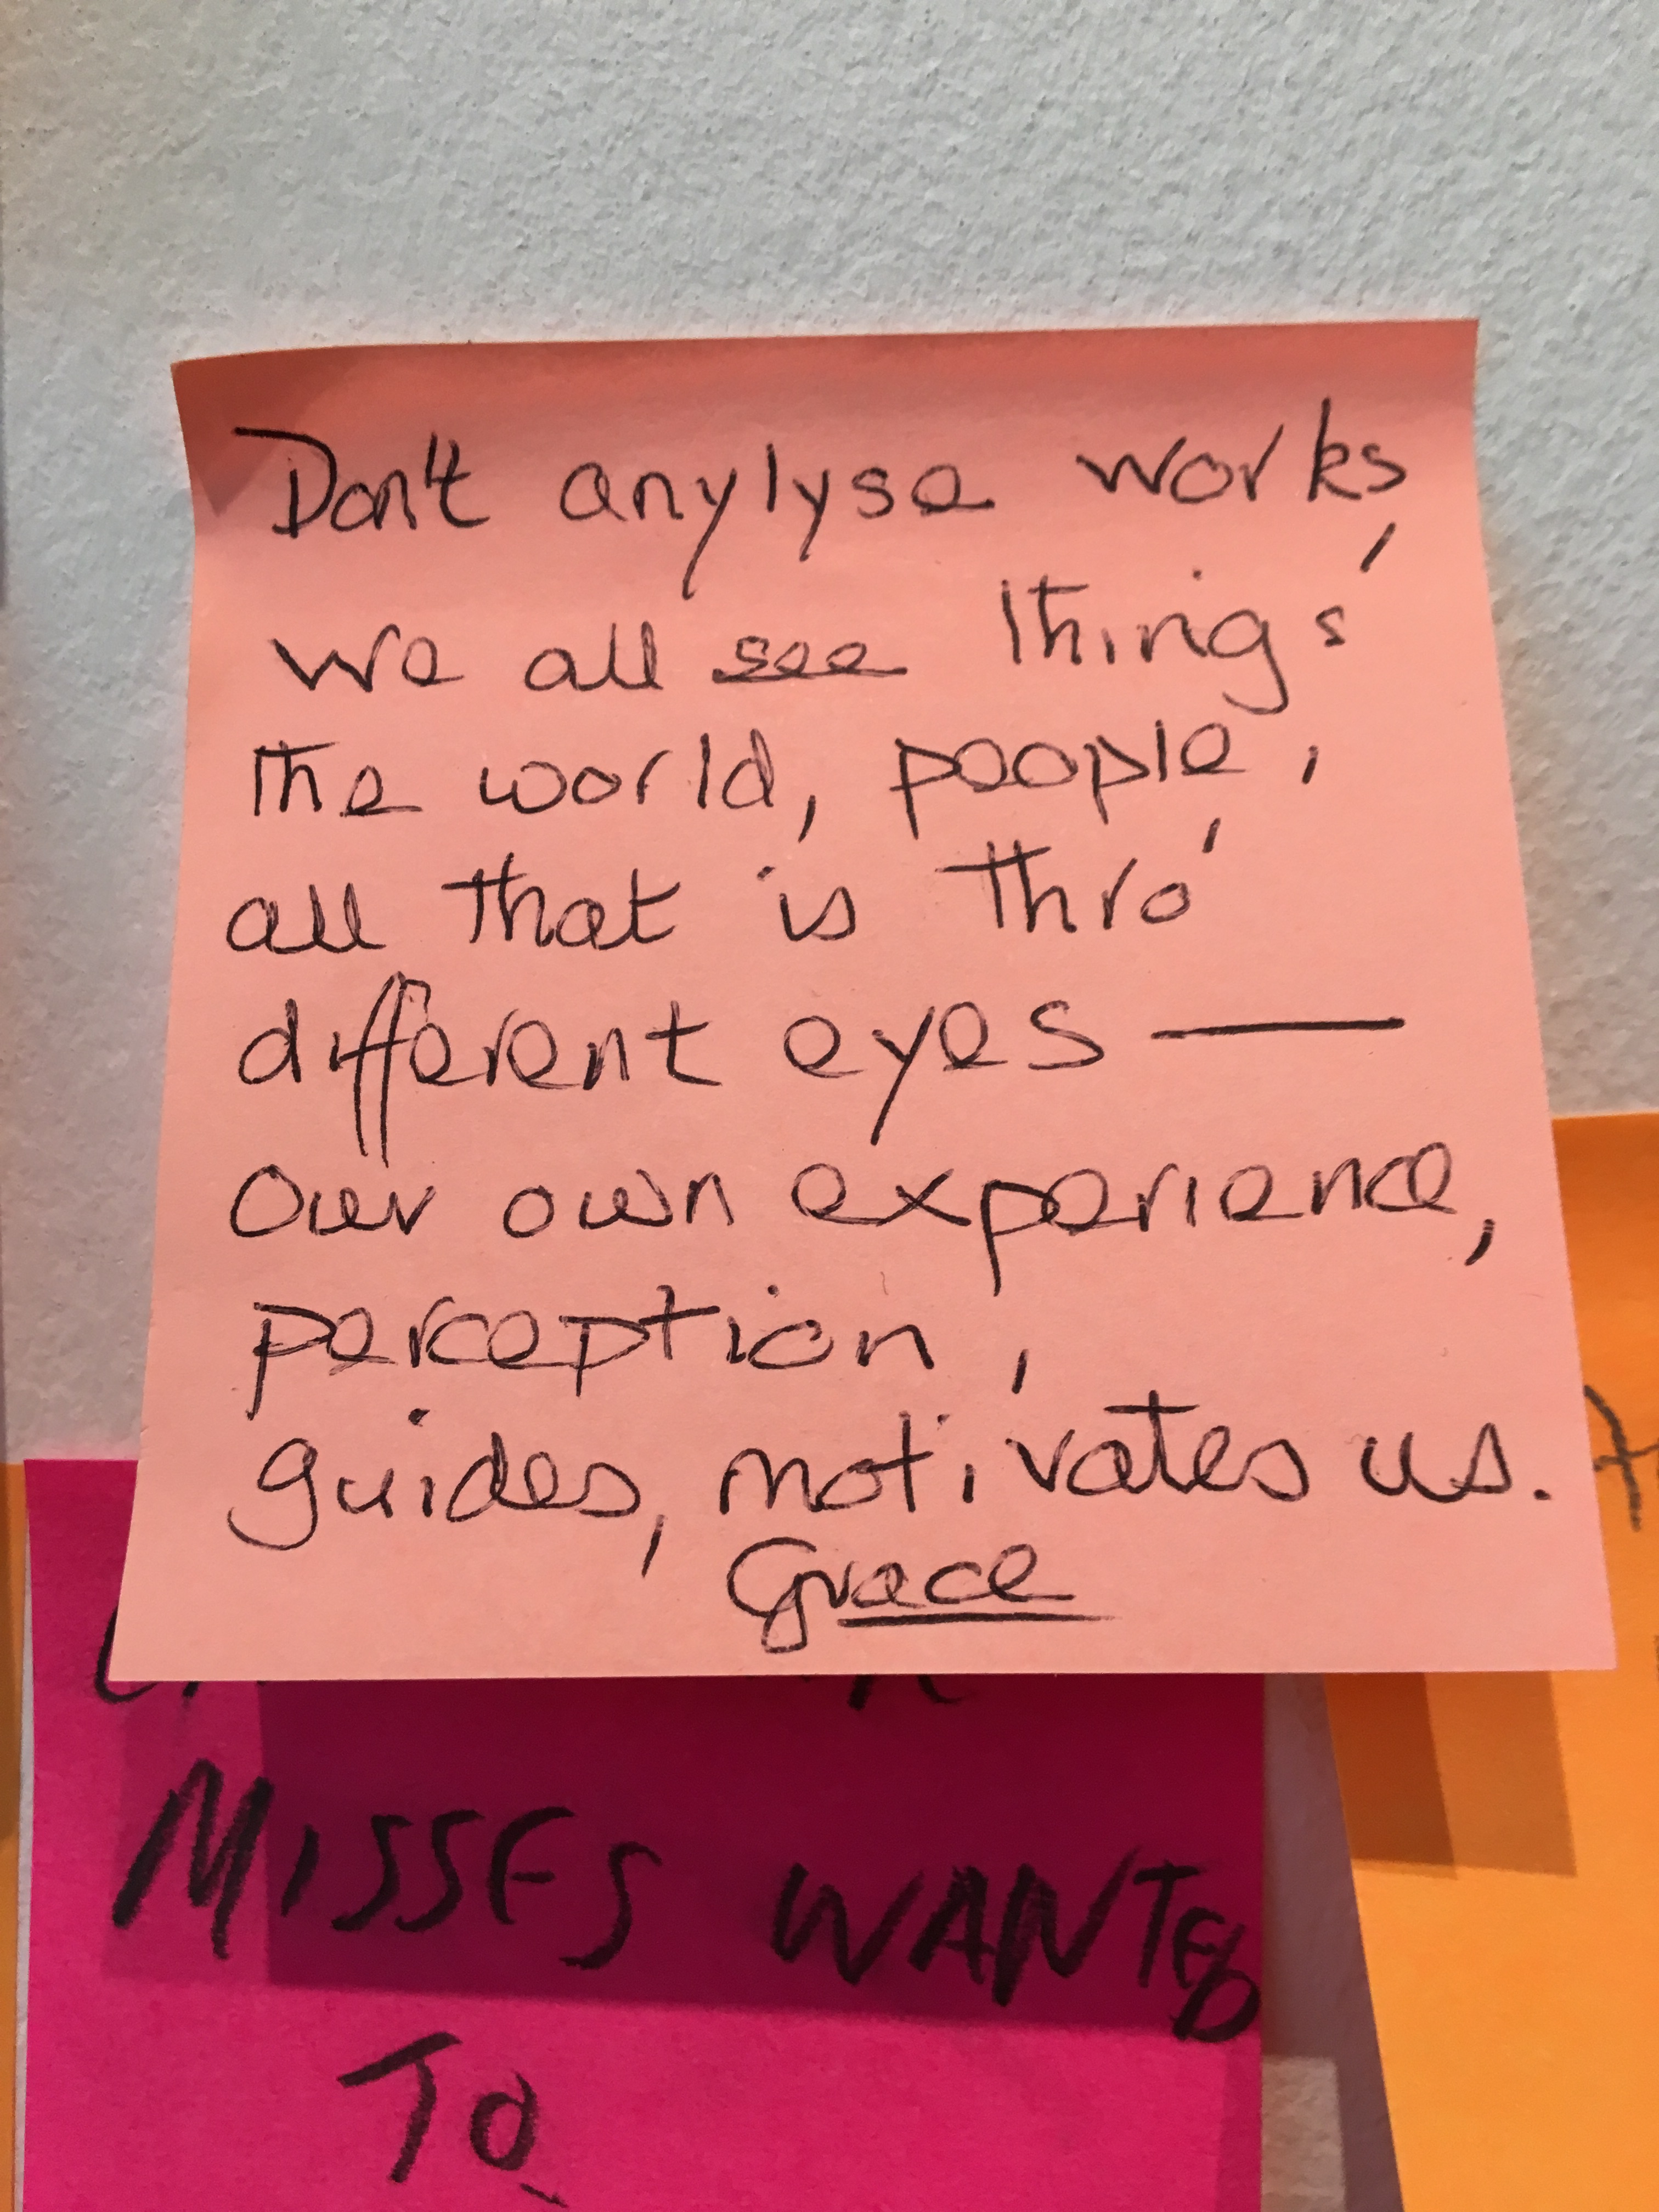 Don't anylyse works,
we all see things'
the world, people,
all that is thro'
different eyes —
Our own experience,
perception,
guides, motivates us.
Grace
MISSES WANTED
TO